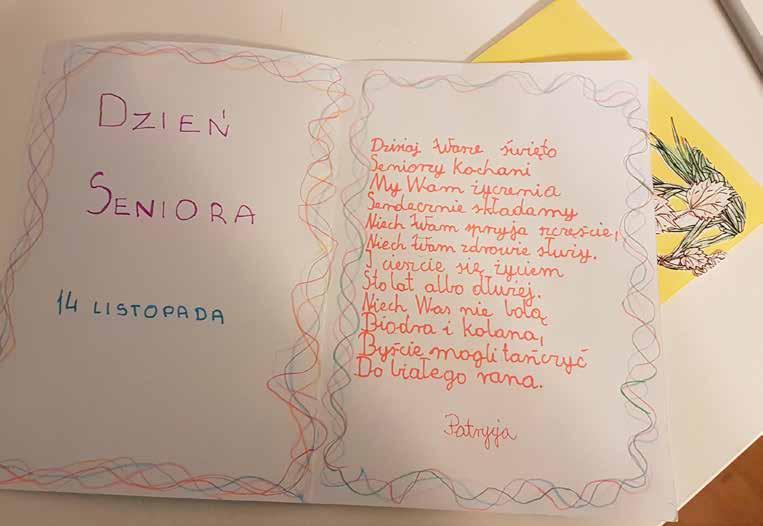 DZIEŃ
SENIORA
14 LISTOPADA
Dzisiaj Wasze święto
Seniorzy Kochani
My Wam życzenia
Serdecznie składamy
Niech Wam sprzyja szczęście,
Niech Wam zdrowie służy.
I cieszcie się życiem
Sto lat albo dłużej.
Niech Was nie bolą
Biodra i kolana,
Byście mogli tańczyć
Do białego rana.
Patrycja